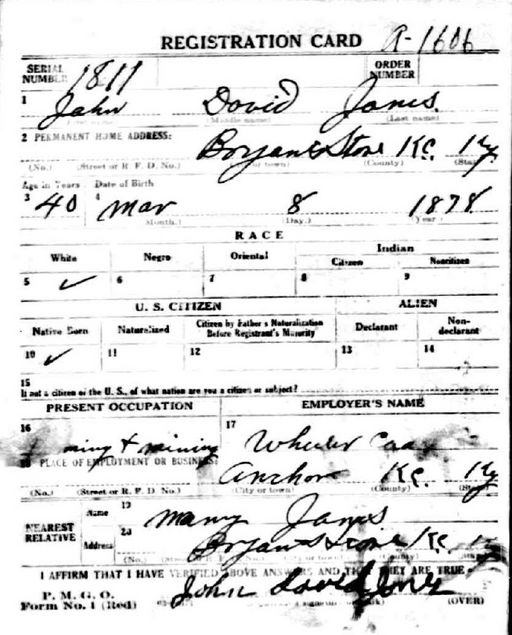 REGISTRATION CARD R-1606
SERIAL NUMBER 1811 ORDER NUMBER
1 John David Jones
(Middle name) (Last name)
2 PERMANENT HOME ADDRESS: Bryan Store Kc. Ky
(No.) (Street or R. F. D. No.) (County)
Age in Years Date of Birth
3 40 4 Mar 8 1878
(Month.) (Day.) (Year.)
RACE
White Negro Oriental Indian
Citizen Noncitizen
5 ✓ 6 7 8 9
U. S. CITIZEN ALIEN
Native Born Naturalized Citizen by Father's Naturalization Before Registrant's Majority Declarant Non-declarant
10 ✓ 11 12 13 14
15
If not a citizen of the U. S., of what nation are you a citizen or subject?
PRESENT OCCUPATION EMPLOYER'S NAME
16 17
+ mining Wheeler
PLACE OF EMPLOYMENT OR BUSINESS:
Anchor Kc. Ky
(No.) (Street or R. F. D. No.) (City or town) (County)
NEAREST RELATIVE Name 19 Mary Jones
Address 20 Bryan Store Kc.
I AFFIRM THAT I HAVE VERIFIED ABOVE ANSWERS AND THEY ARE TRUE
P. M. G. O.
Form No. 1 (Red) John David Jones (OVER)